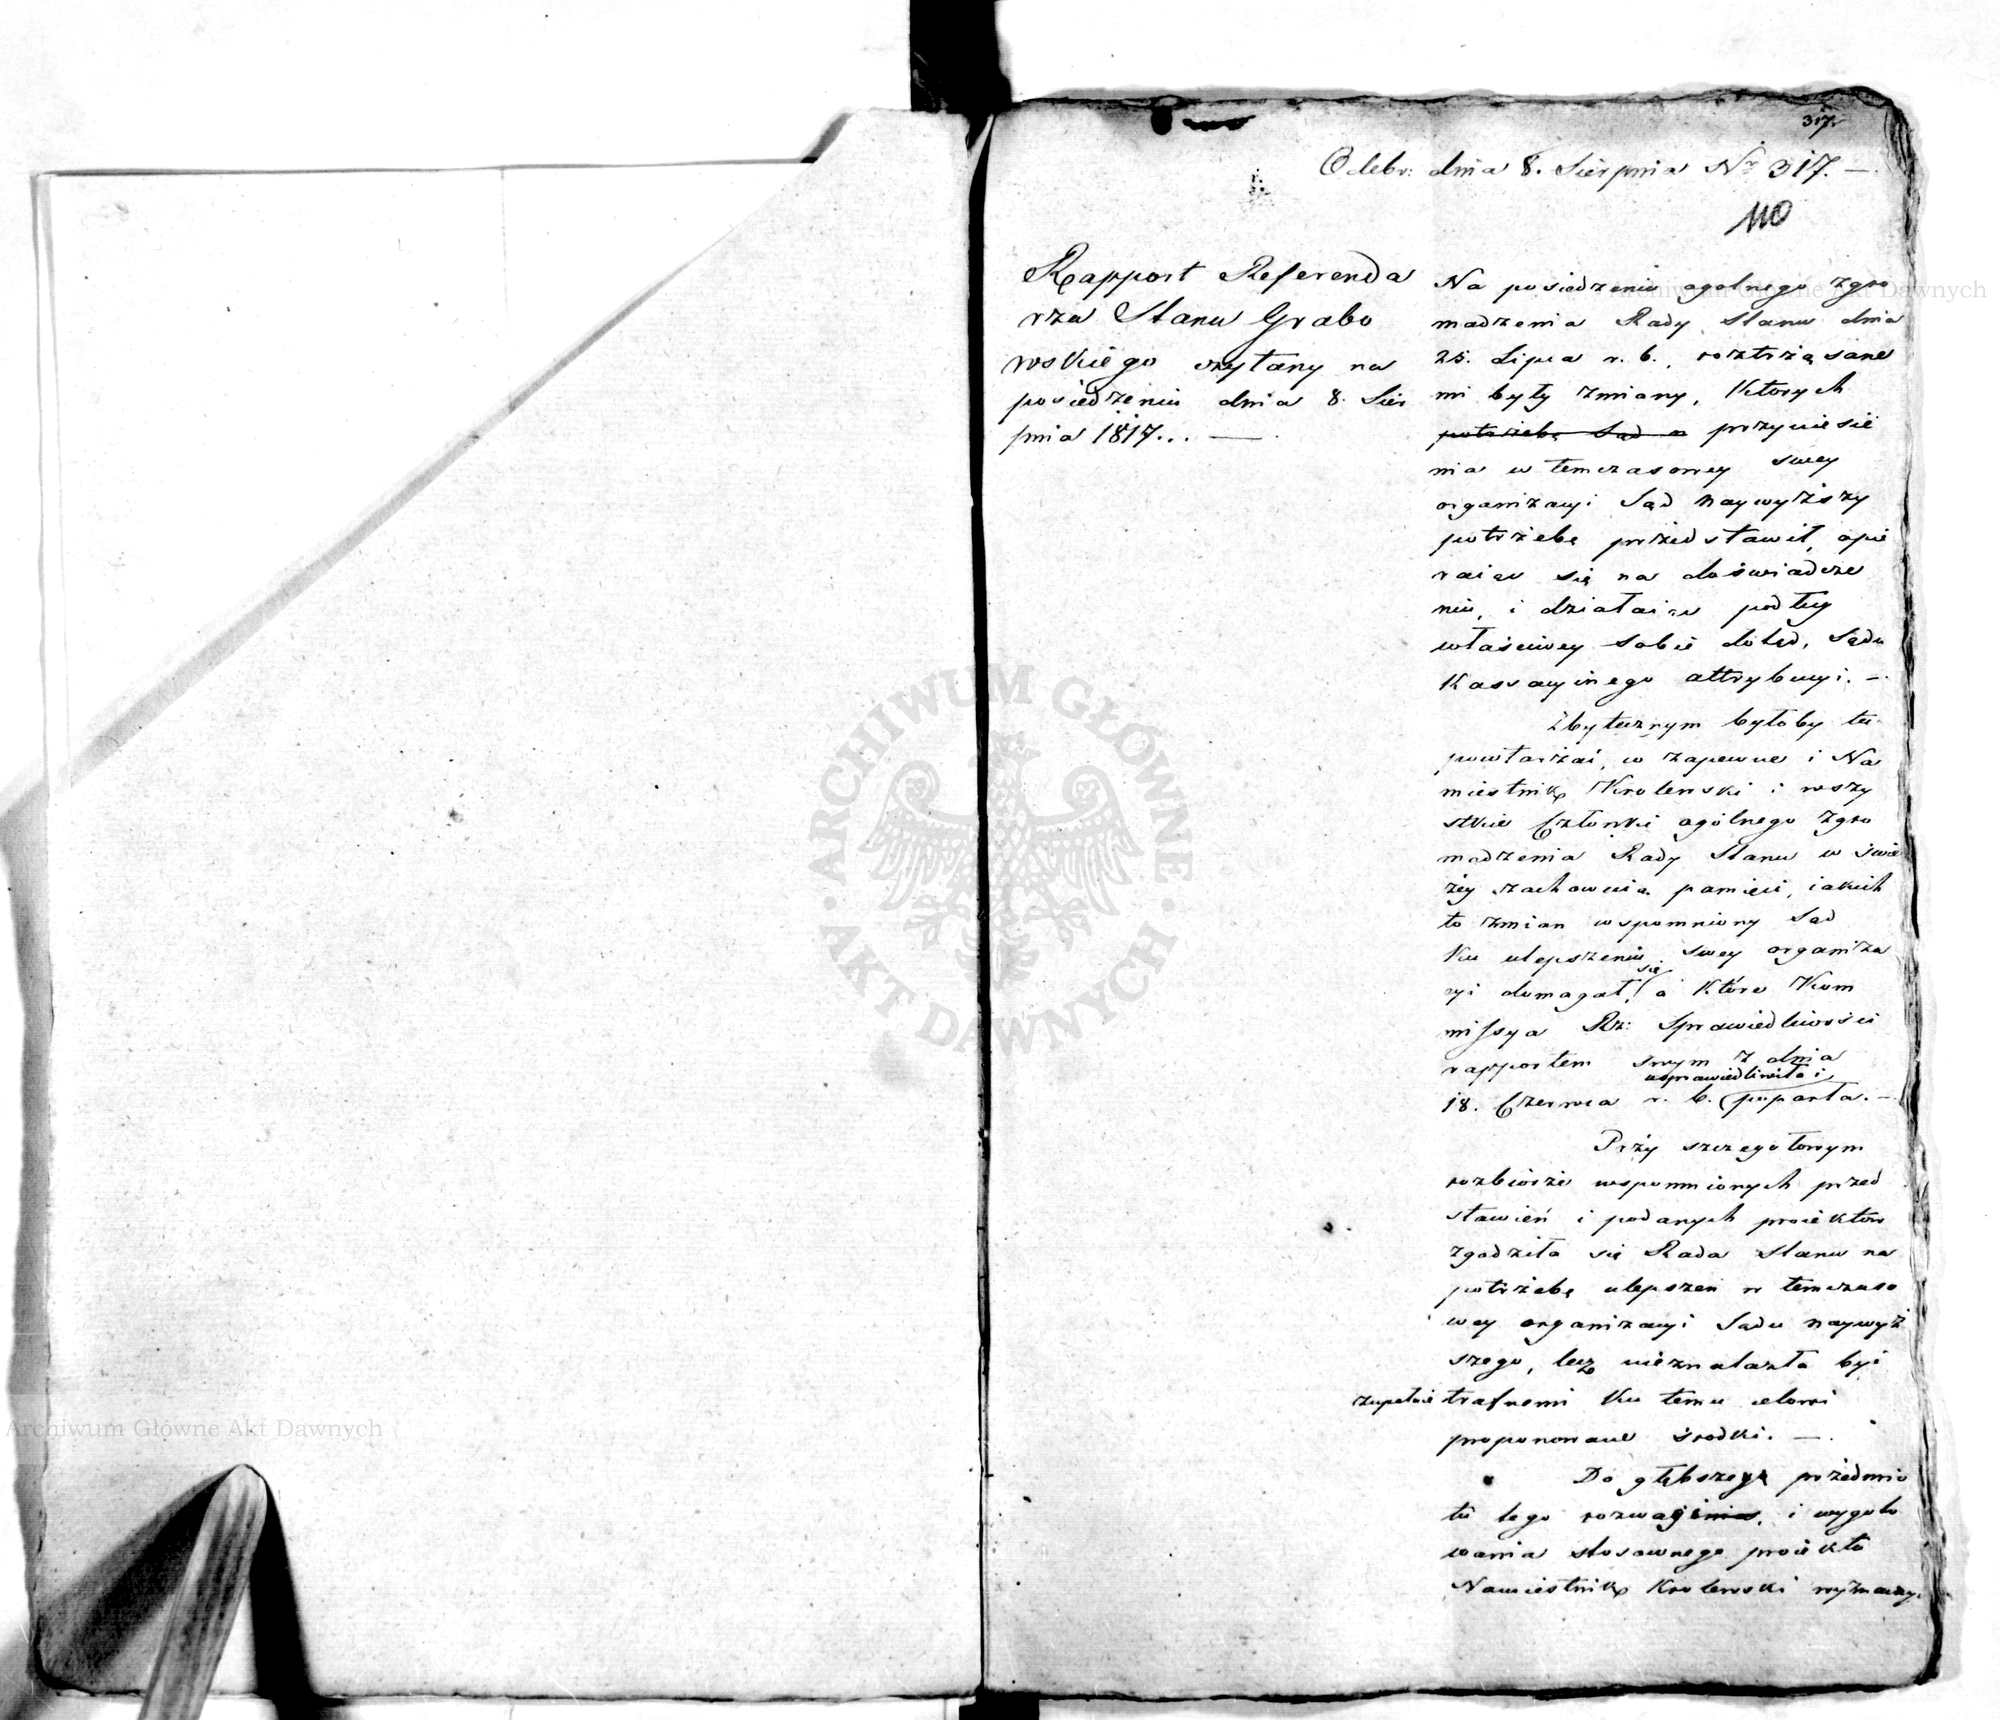 317.
Odebr: dnia 8. Sierpnia Nr 317. —
110
Rapport Referenda
rza Stanu Grabo
wskiego czytany na
posiedzeniu dnia 8. Sier
pnia 1817... —
Na posiedzeniu ogolnego zgro
madzenia Rady Stanu dnia
25. Lipca r. b., roztrząsane
mi były zmiany, których
potrzebę Sąd n przyniesie
nia w temczasowey swey
organizacyi Sąd Naywyższy
potrzebę przedstawił, opie
raiąc się na doświadcze
niu, i działaiąc podług
właściwey sobie dotąd, Sądu
Kassacyinego attrybucyi. —
Zbytecznym byłoby tu
powtarzać, co zapewne i Na
miestnik Krolewski i wszy
stkie Członki ogólnego zgro
madzenia Rady Stanu w świe
żey zachowuią pamięci, iakich
to zmian wspomniony Sąd
ku ulepszeniu swey organiza
cyi domagał się, a które Kom
missya Rz: Sprawiedliwości
rapportem swym z dnia
usprawiedliwiła i
18. Czerwca r. b. poparła. —
Przy szczegołowym
rozbiorze wspomnionych przed
stawień i podanych proiektow
zgodziła się Rada Stanu na
potrzebę ulepszeń w temczaso
wey organizacyi Sądu Naywyż
szego, lecz nieznalazła być
zupełnie trafnemi ku temu celowi
proponowane środki. —
Do głębszego przedmio
tu tego i wygoto
wania stosownego proiektu
Namiestnik Krolewski wyznaczy
Archiwum Główne Akt Dawnych
Archiwum Główne Akt Dawnych
ARCHIWUM GŁÓWNE
AKT DAWNYCH